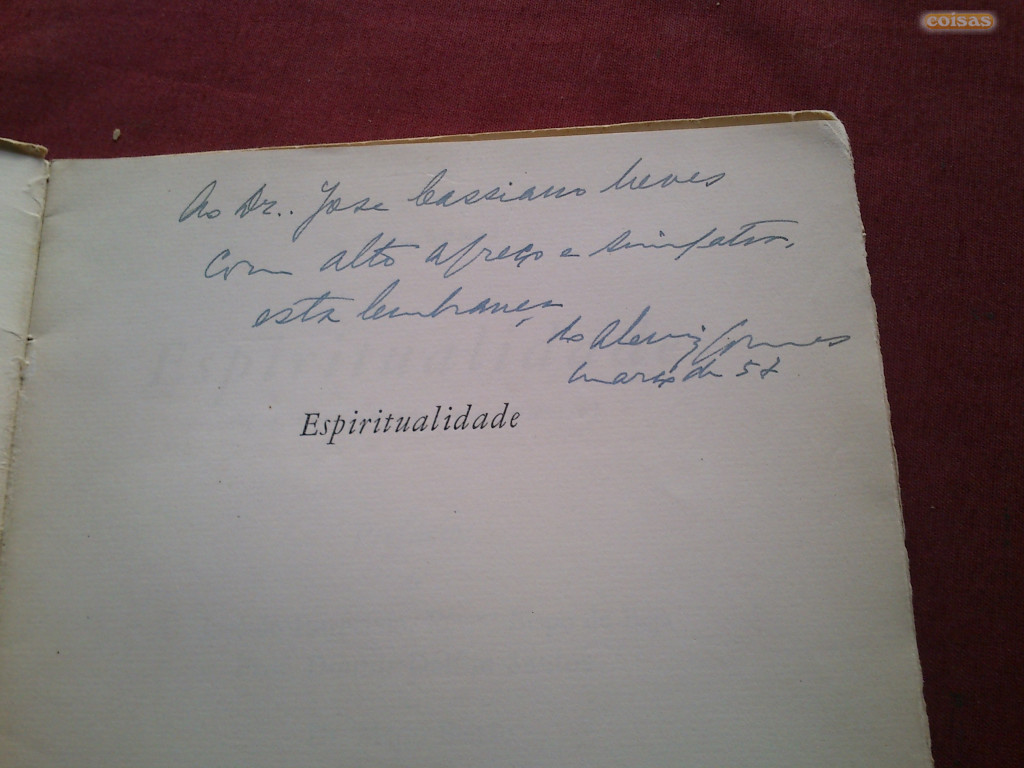 coisas
Ao Dr.. Jose Cassiano Neves
com alto apreço e simpatia,
esta lembrança
do Aleu Gomes
março de 57
Espiritualidade